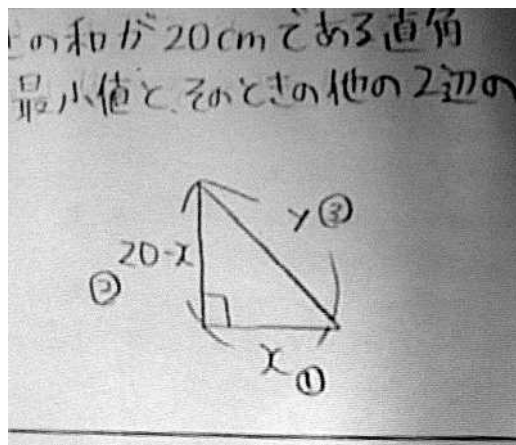 の和が20cmである直角
最小値と、そのときの他の2辺の
y③
20-x
②
x①